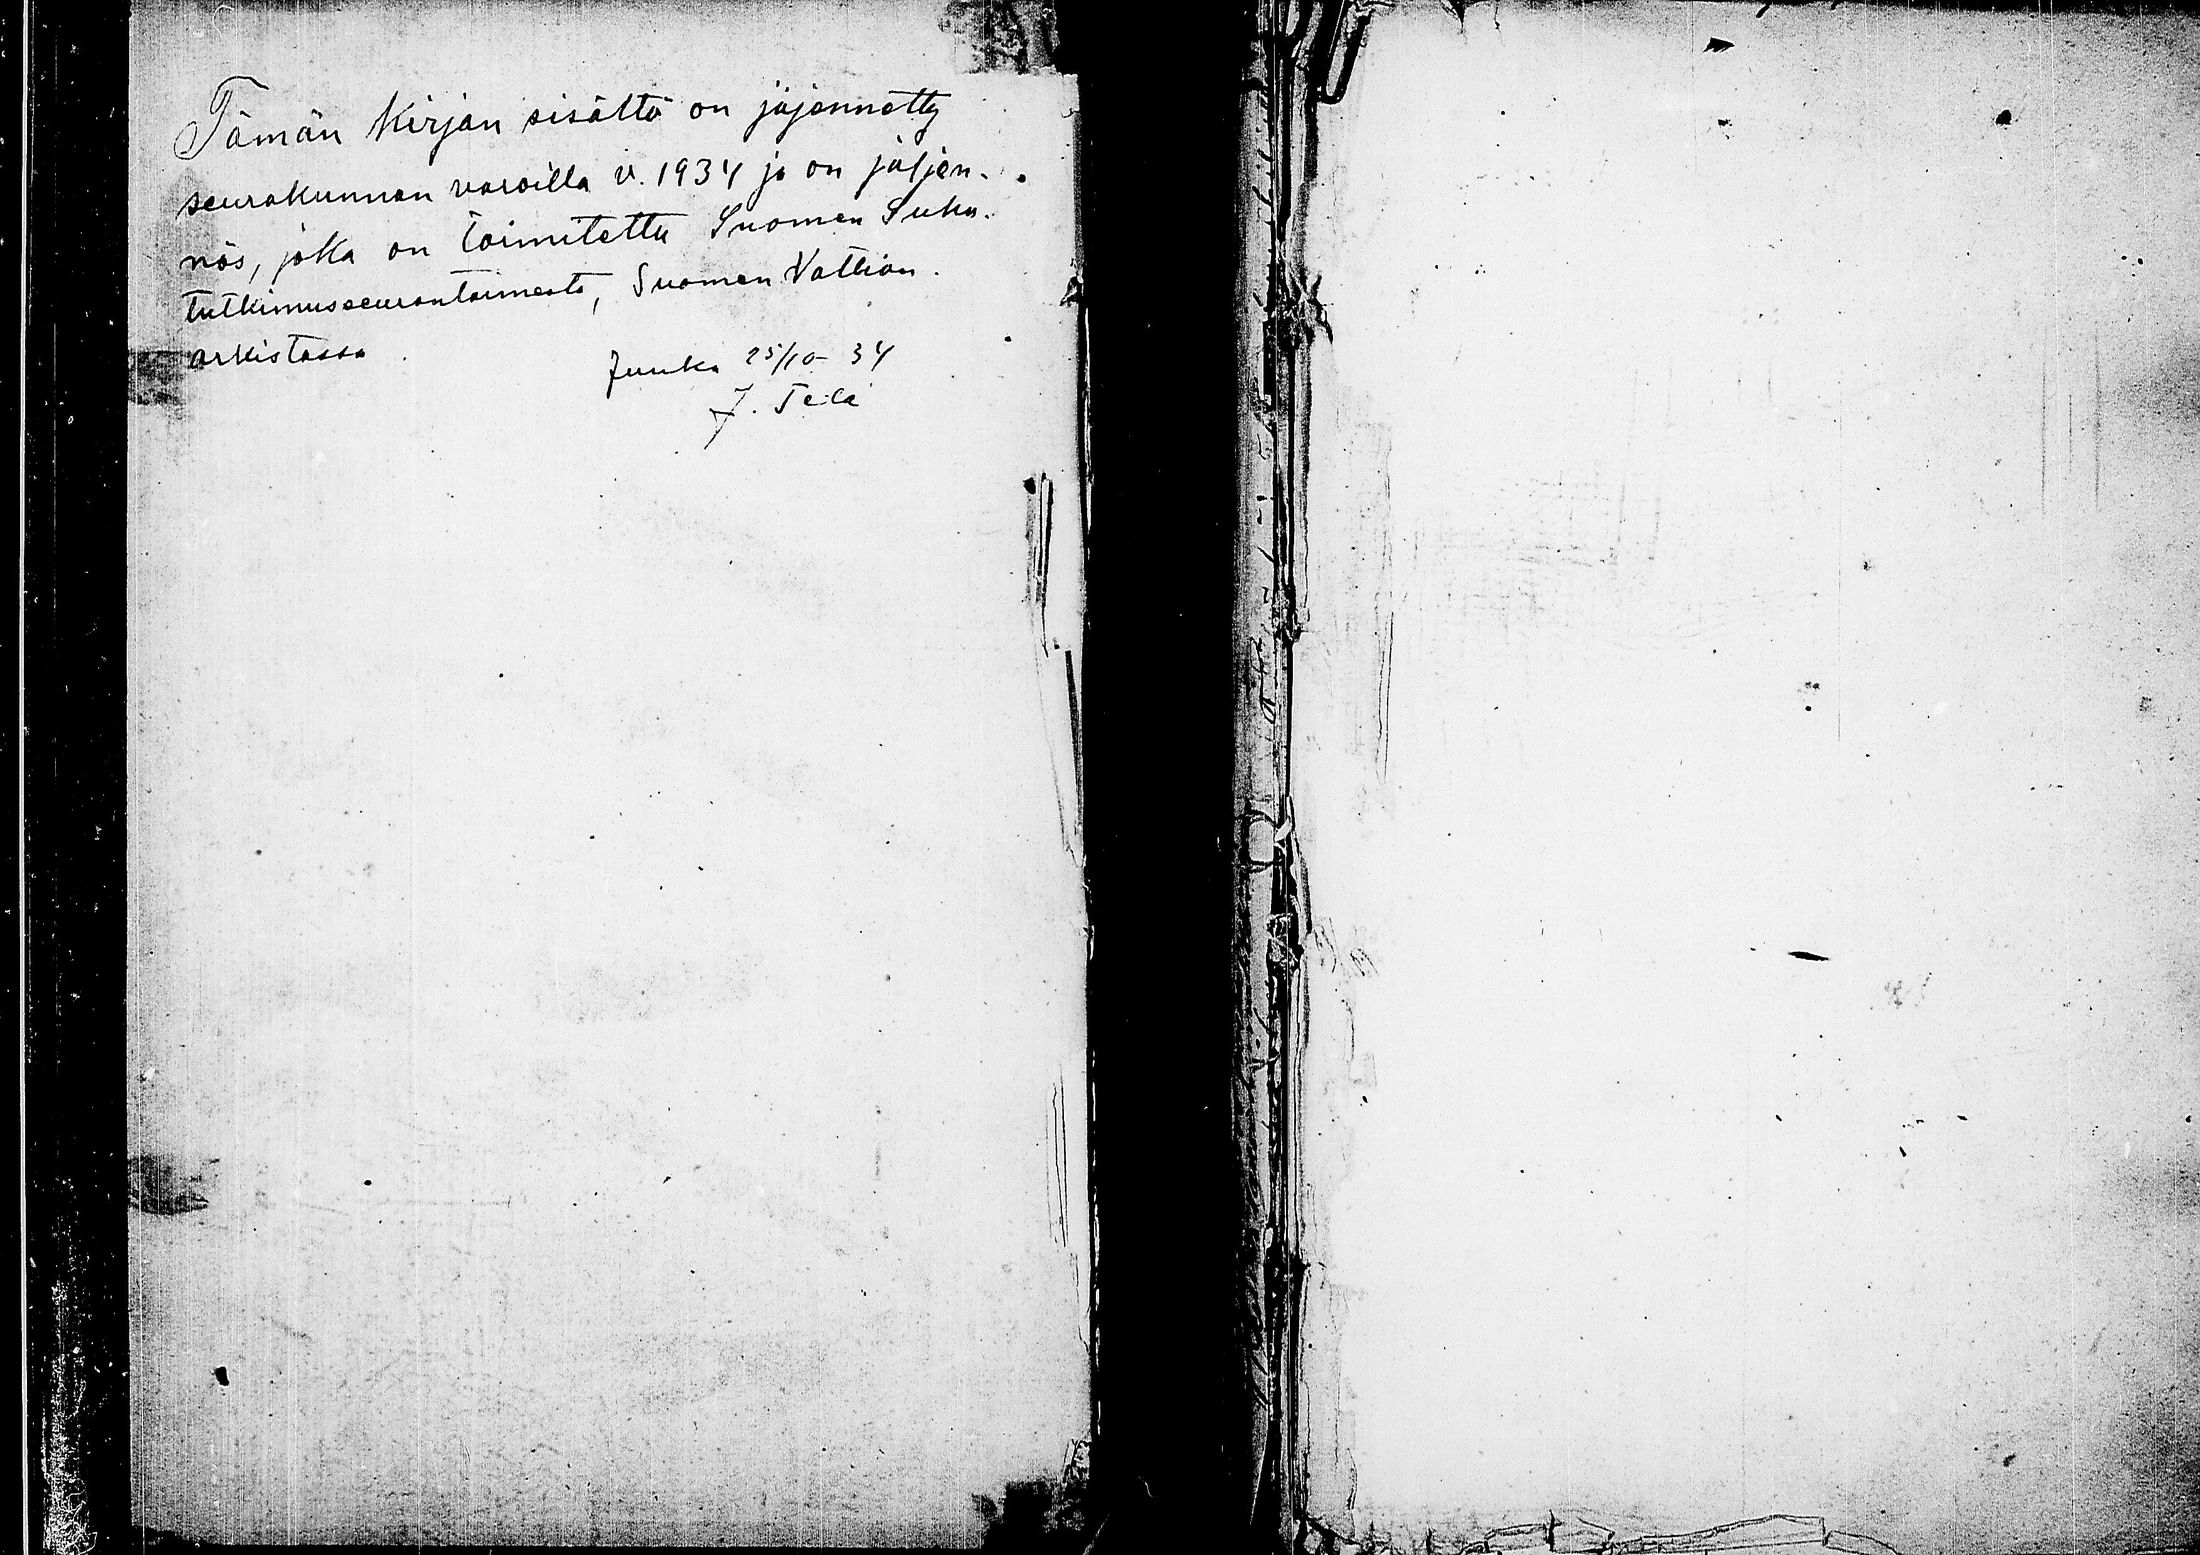 Tämän Kirjan sisältö on jäjennetty
seurakunnan varoilla v. 1934 ja on jäljen-
nös, joka on toimitettu Suomen Suku-
tutkimusseurantoimesta, Suomen Valtion-
arkistossa
Juuka 25/10 - 34
J. Telä